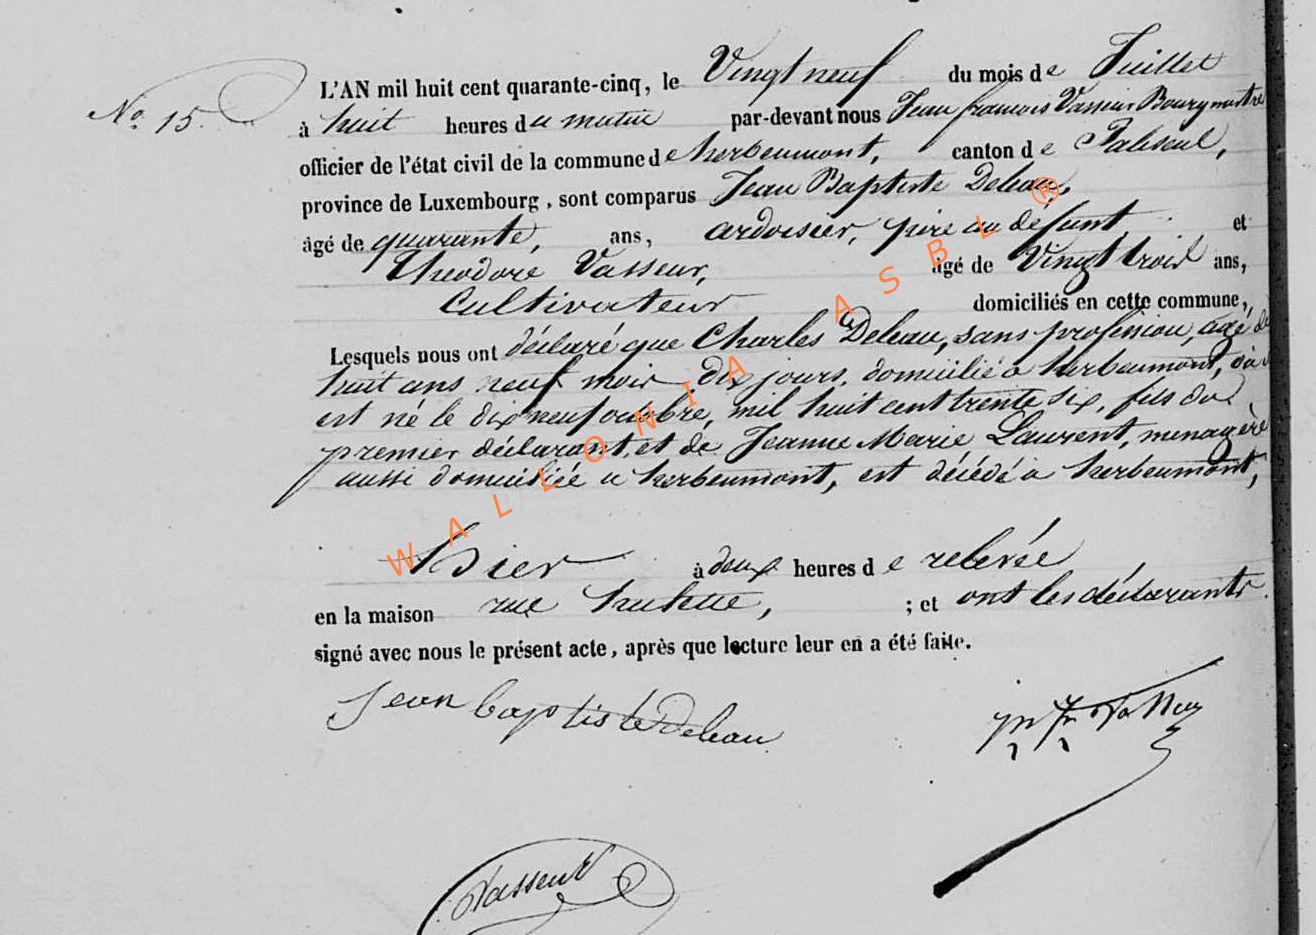 L'AN mil huit cent quarante-cinq, le Vingt neuf du mois de Juillet
No. 15.
à huit heures du matin par-devant nous Jean françois Vasseur Bourgmestre
officier de l'état civil de la commune de herbeumont, canton de Paliseul,
province de Luxembourg, sont comparus Jean Baptiste Deleau,
âgé de quarante, ans, ardoisier, père au défunt et
Théodore Vasseur, âgé de Vingt trois ans,
Cultivateur domiciliés en cette commune,
Lesquels nous ont déclaré que Charles Deleau, sans profession, agé de
huit ans neuf mois dix jours, domicilié à herbeumont, où il
est né le dix neuf octobre, mil huit cent trente six, fils du
premier déclarant, et de Jeanne Marie Laurent, menagère
aussi domiciliée a herbeumont, est décédé à herbeumont,
hier à deux heures de relevée
en la maison rue ; et ont les déclarants
signé avec nous le présent acte, après que lecture leur en a été faite.
Jean baptiste deleau
Vasseur
WALLONIA ASBL ®